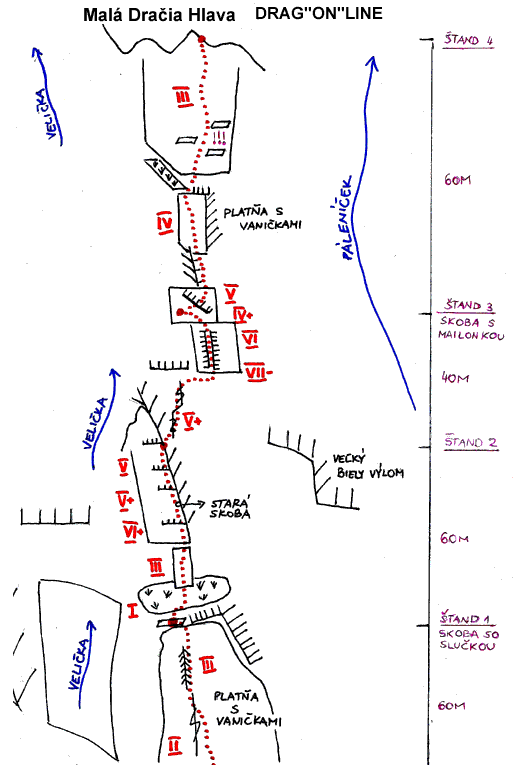 Malá Dračia Hlava DRAG"ON"LINE
ŠTAND 4
VELIČKA
III
60M
PÁLENÍČEK
IV
PLATŇA S
VANIČKAMI
V
IV+
ŠTAND 3
SKOBA S
MAILONKOU
VI
VII-
40M
VELIČKA
V+
ŠTAND 2
IV
VEĽKÝ
BIELY VÝLOM
V+
STARÁ
SKOBA
VI+
60M
III
I
ŠTAND 1
SKOBA SO
SLUČKOU
VELIČKA
III
PLATŇA
S
VANIČKAMI
60M
II